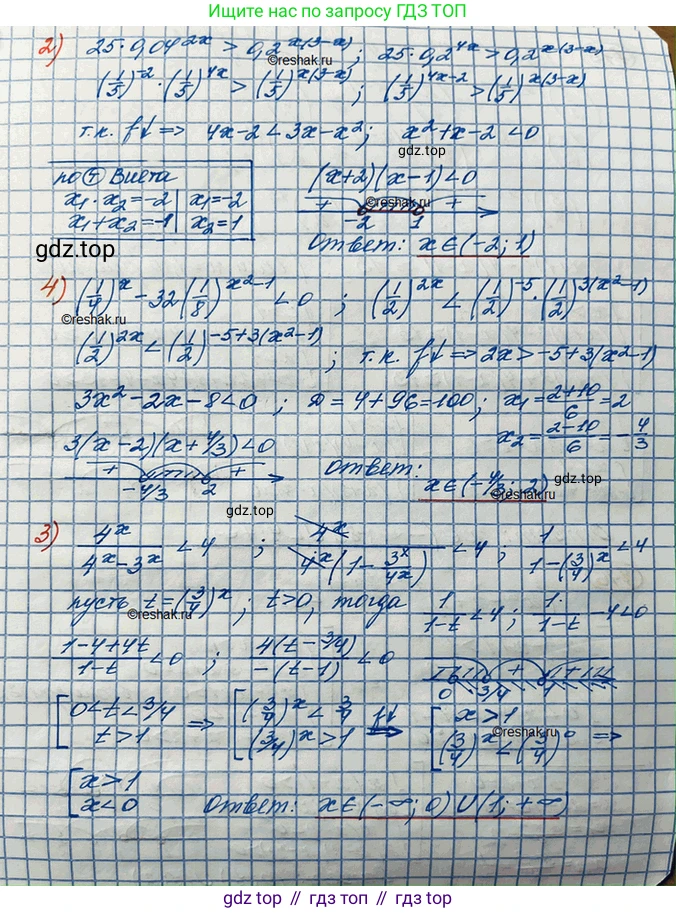 Ищите нас по запросу ГДЗ ТОП
2) 25·0,04^{2x} > 0,2^{x(3-x)}; 25·0,2^{4x} > 0,2^{x(3-x)}
©reshak.ru
(1/5)^{-2} · (1/5)^{4x} > (1/5)^{x(3-x)} ; (1/5)^{4x-2} > (1/5)^{x(3-x)}
т.к. f↓ => 4x-2 < 3x-x²; x²+x-2 < 0
gdz.top
по Т Виета
x₁·x₂=-2 | x₁=-2
x₁+x₂=-1 | x₂=1
(x+2)(x-1)<0
+ - +
-2 1
gdz.top
Ответ: x∈(-2; 1)
4) (1/4)^x - 32(1/8)^{x²-1} < 0 ; (1/2)^{2x} < (1/2)^{-5}·(1/2)^{3(x²-1)}
©reshak.ru
(1/2)^{2x} < (1/2)^{-5+3(x²-1)} ; т.к. f↓ => 2x > -5+3(x²-1)
3x²-2x-8<0 ; D=4+96=100; x₁=(2+10)/6=2
x₂=(2-10)/6=-4/3
3(x-2)(x+4/3)<0
+ - +
-4/3 2
Ответ:
x∈(-4/3; 2)
gdz.top
gdz.top
3) 4^x/(4^x-3^x) < 4 ; 4^x/(4^x(1-3^x/4^x)) < 4 ; 1/(1-(3/4)^x) < 4
пусть t=(3/4)^x ; t>0, тогда 1/(1-t) < 4 ; 1/(1-t) - 4 < 0
©reshak.ru
(1-4+4t)/(1-t) < 0 ; 4(t-3/4)/(-(t-1)) < 0
0 3/4 1
[0<t<3/4
t>1 => [(3/4)^x < 3/4
(3/4)^x > 1 f↓ => [x>1
(3/4)^x < (3/4)^0 =>
©reshak.ru
[x>1
x<0 Ответ: x∈(-∞; 0)∪(1; +∞)
gdz.top // гдз топ // гдз.топ // gdz top